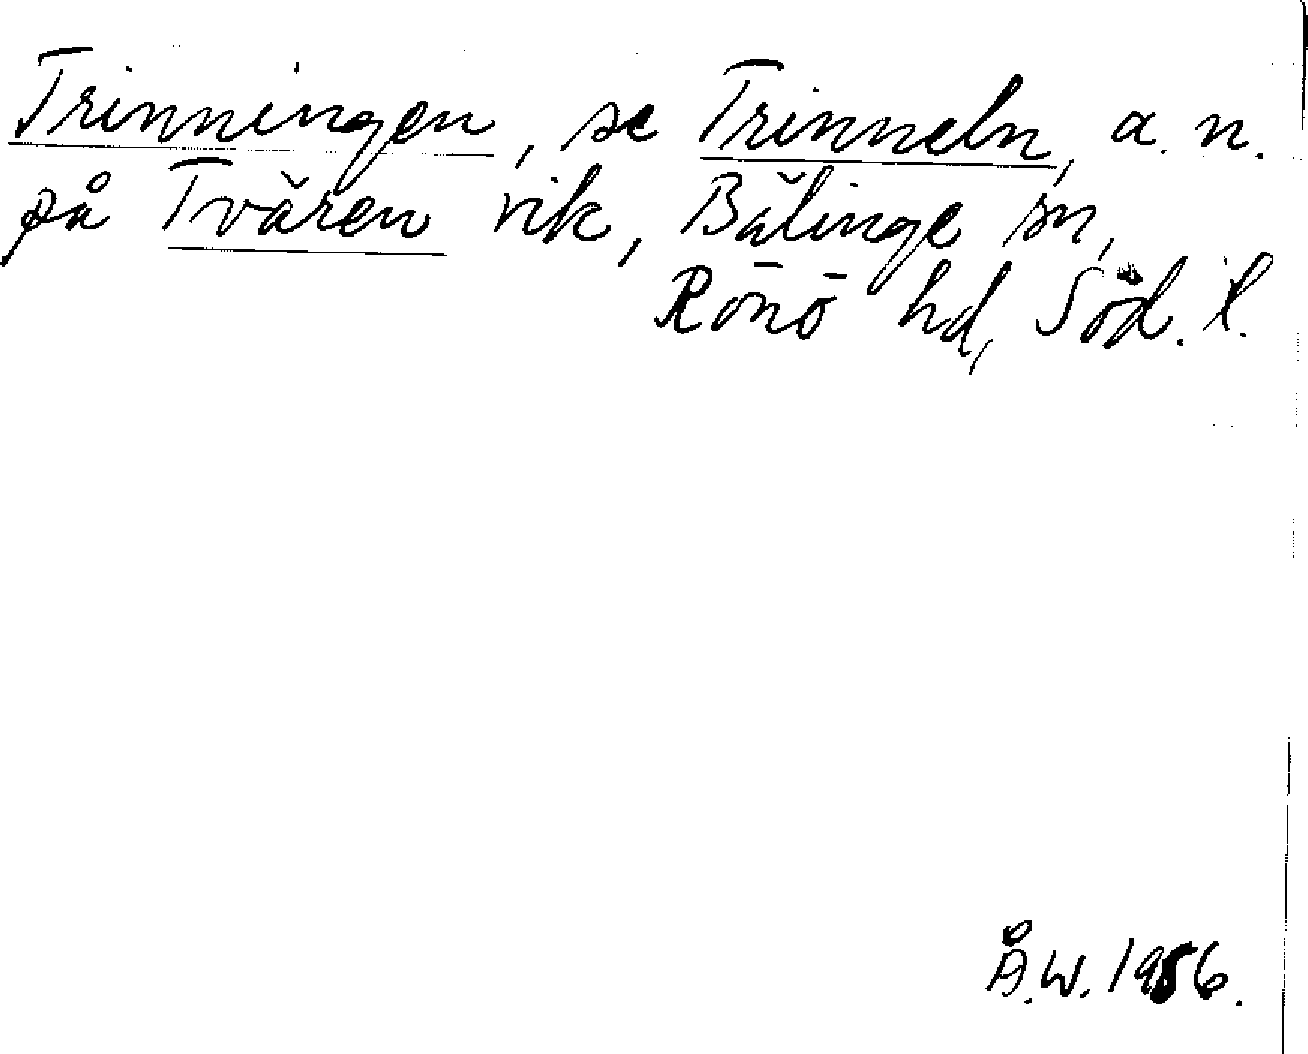 Trinningen, se Trinneln, a. n.
på Tvären vik, Bälinge sn,
Rönö hd, Söd. l.
Å.W. 1986.